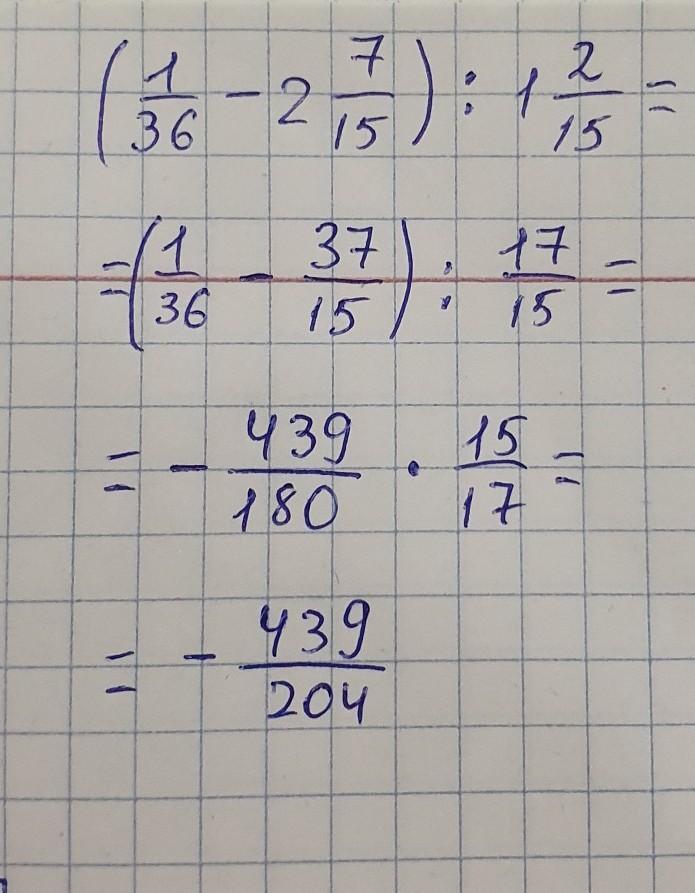 (1/36 - 2 7/15) : 1 2/15 =
= (1/36 - 37/15) : 17/15 =
= - 439/180 · 15/17 =
= - 439/204